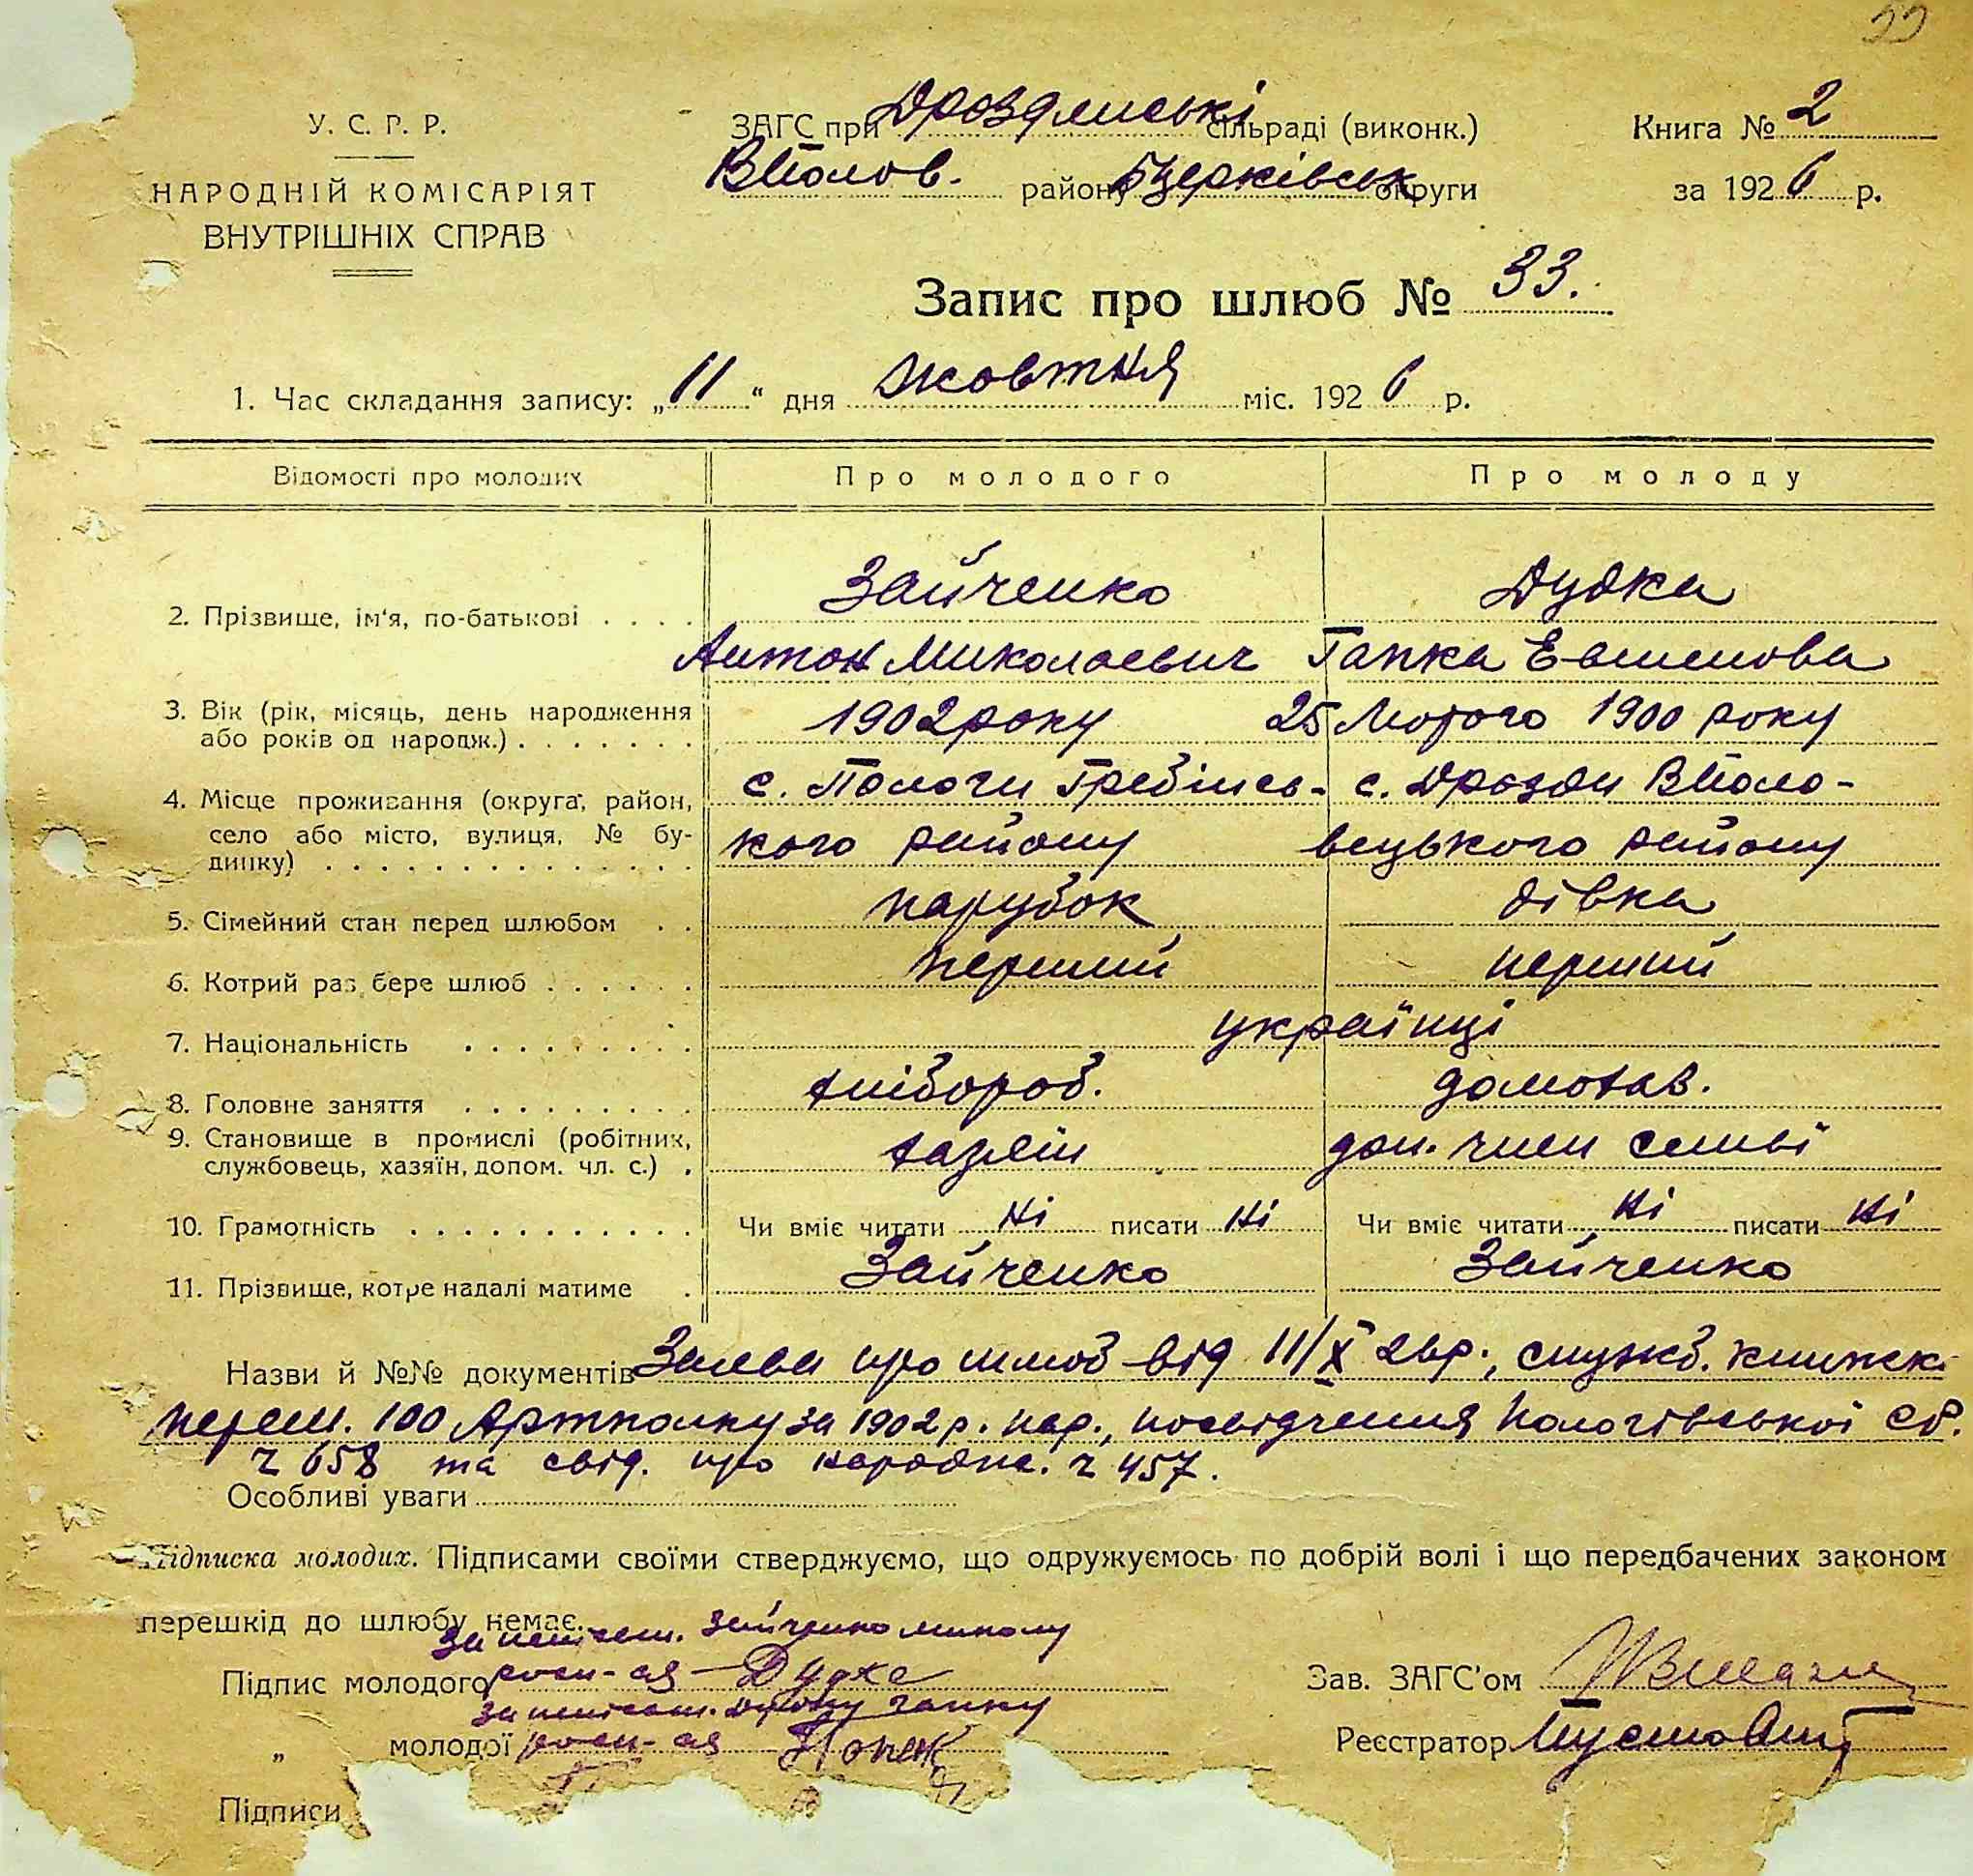 33
У. С. Р. Р.
НАРОДНІЙ КОМІСАРІЯТ
ВНУТРІШНІХ СПРАВ
ЗАГС при Дроздянські сільраді (виконк.)
ВПолов. району БЦерківськ округи
Книга № 2
за 1926 р.
Запис про шлюб № 33.
1. Час складання запису: „11“ дня жовтня міс. 1926 р.
Відомості про молодих
Про молодого
Про молоду
2. Прізвище, ім'я, по-батькові
Зайченко
Антон Миколаевич
Дудка
Гапка Евменова
3. Вік (рік, місяць, день народження
або років од народж.)
1902 року
25 Лютого 1900 року
4. Місце проживання (округа, район,
село або місто, вулиця, № бу-
динку)
с. Пологи Гребінсь-
кого району
с. Дрозди ВПоло-
вецького району
5. Сімейний стан перед шлюбом
парубок
дівка
6. Котрий раз бере шлюб
перший
перший
7. Національність
українці
8. Головне заняття
хлібороб.
домохаз.
9. Становище в промислі (робітник,
службовець, хазяїн, допом. чл. с.)
хазяїн
доп. член семьї
10. Грамотність
Чи вміє читати ні писати ні
Чи вміє читати ні писати ні
11. Прізвище, котре надалі матиме
Зайченко
Зайченко
Назви й №№ документів Заява про шлюб від 11/X 26р., служб. книжка
перем. 100 Артполку за 1902 р. нар., посвідчення Пологівської с/р.
ч 658 та свід. про народж. ч 457.
Особливі уваги
Підписка молодих. Підписами своїми стверджуємо, що одружуємось по добрій волі і що передбачених законом
перешкід до шлюбу немає.
за неписьм. Зайченко миколу
Підпис молодого росп-ся Дудка
за неписьм. Дудку Гапку
„ молодої росп-ся
Зав. ЗАГС'ом
Реєстратор
Підписи